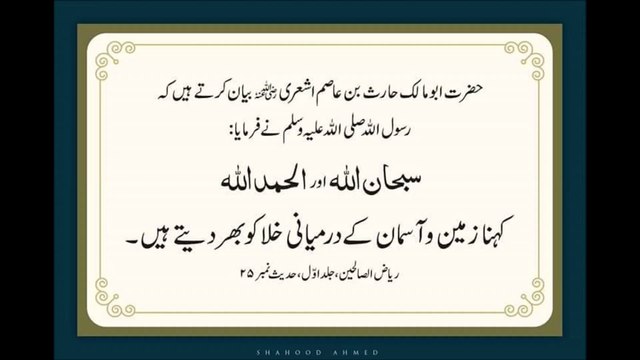 حضرت ابو مالک حارث بن عاصم اشعری رضی اللہ عنہ بیان کرتے ہیں کہ
رسول اللہ صلی اللہ علیہ وسلم نے فرمایا:
سبحان اللہ اور الحمد اللہ
کہنا زمین و آسمان کے درمیانی خلا کو بھر دیتے ہیں۔
ریاض الصالحین، جلد اوّل، حدیث نمبر ۲۵
SHAHOOD AHMED